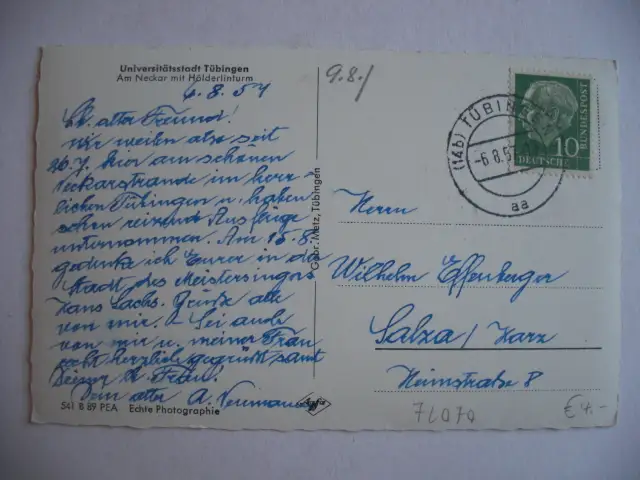 Universitätsstadt Tübingen
Am Neckar mit Hölderlinturm
6.8.57
Lb. alter Freund!
Wir weilen also seit
26.7. hier am schönen
Neckarstrande im herr-
lichen Tübingen u. haben
schon reizende Ausflüge
unternommen. Am 15.8.
gedenke ich Eurer in der
Stadt des Meistersingers
Hans Sachs. Grüße alle
von mir. Sei auch
von mir u. meiner Frau
recht herzlich gegrüßt samt
Deiner Frau!
Dein alter A. Neumann
541 B 89 PEA Echte Photographie
Gebr. Metz, Tübingen
Agfa
9.8./
(14b) TÜBINGEN
-6.8.5
aa
10
DEUTSCHE
BUNDESPOST
Herrn
Wilhelm Effenberger
Salza/Harz
Heimstraße 8
7L070
€4.-